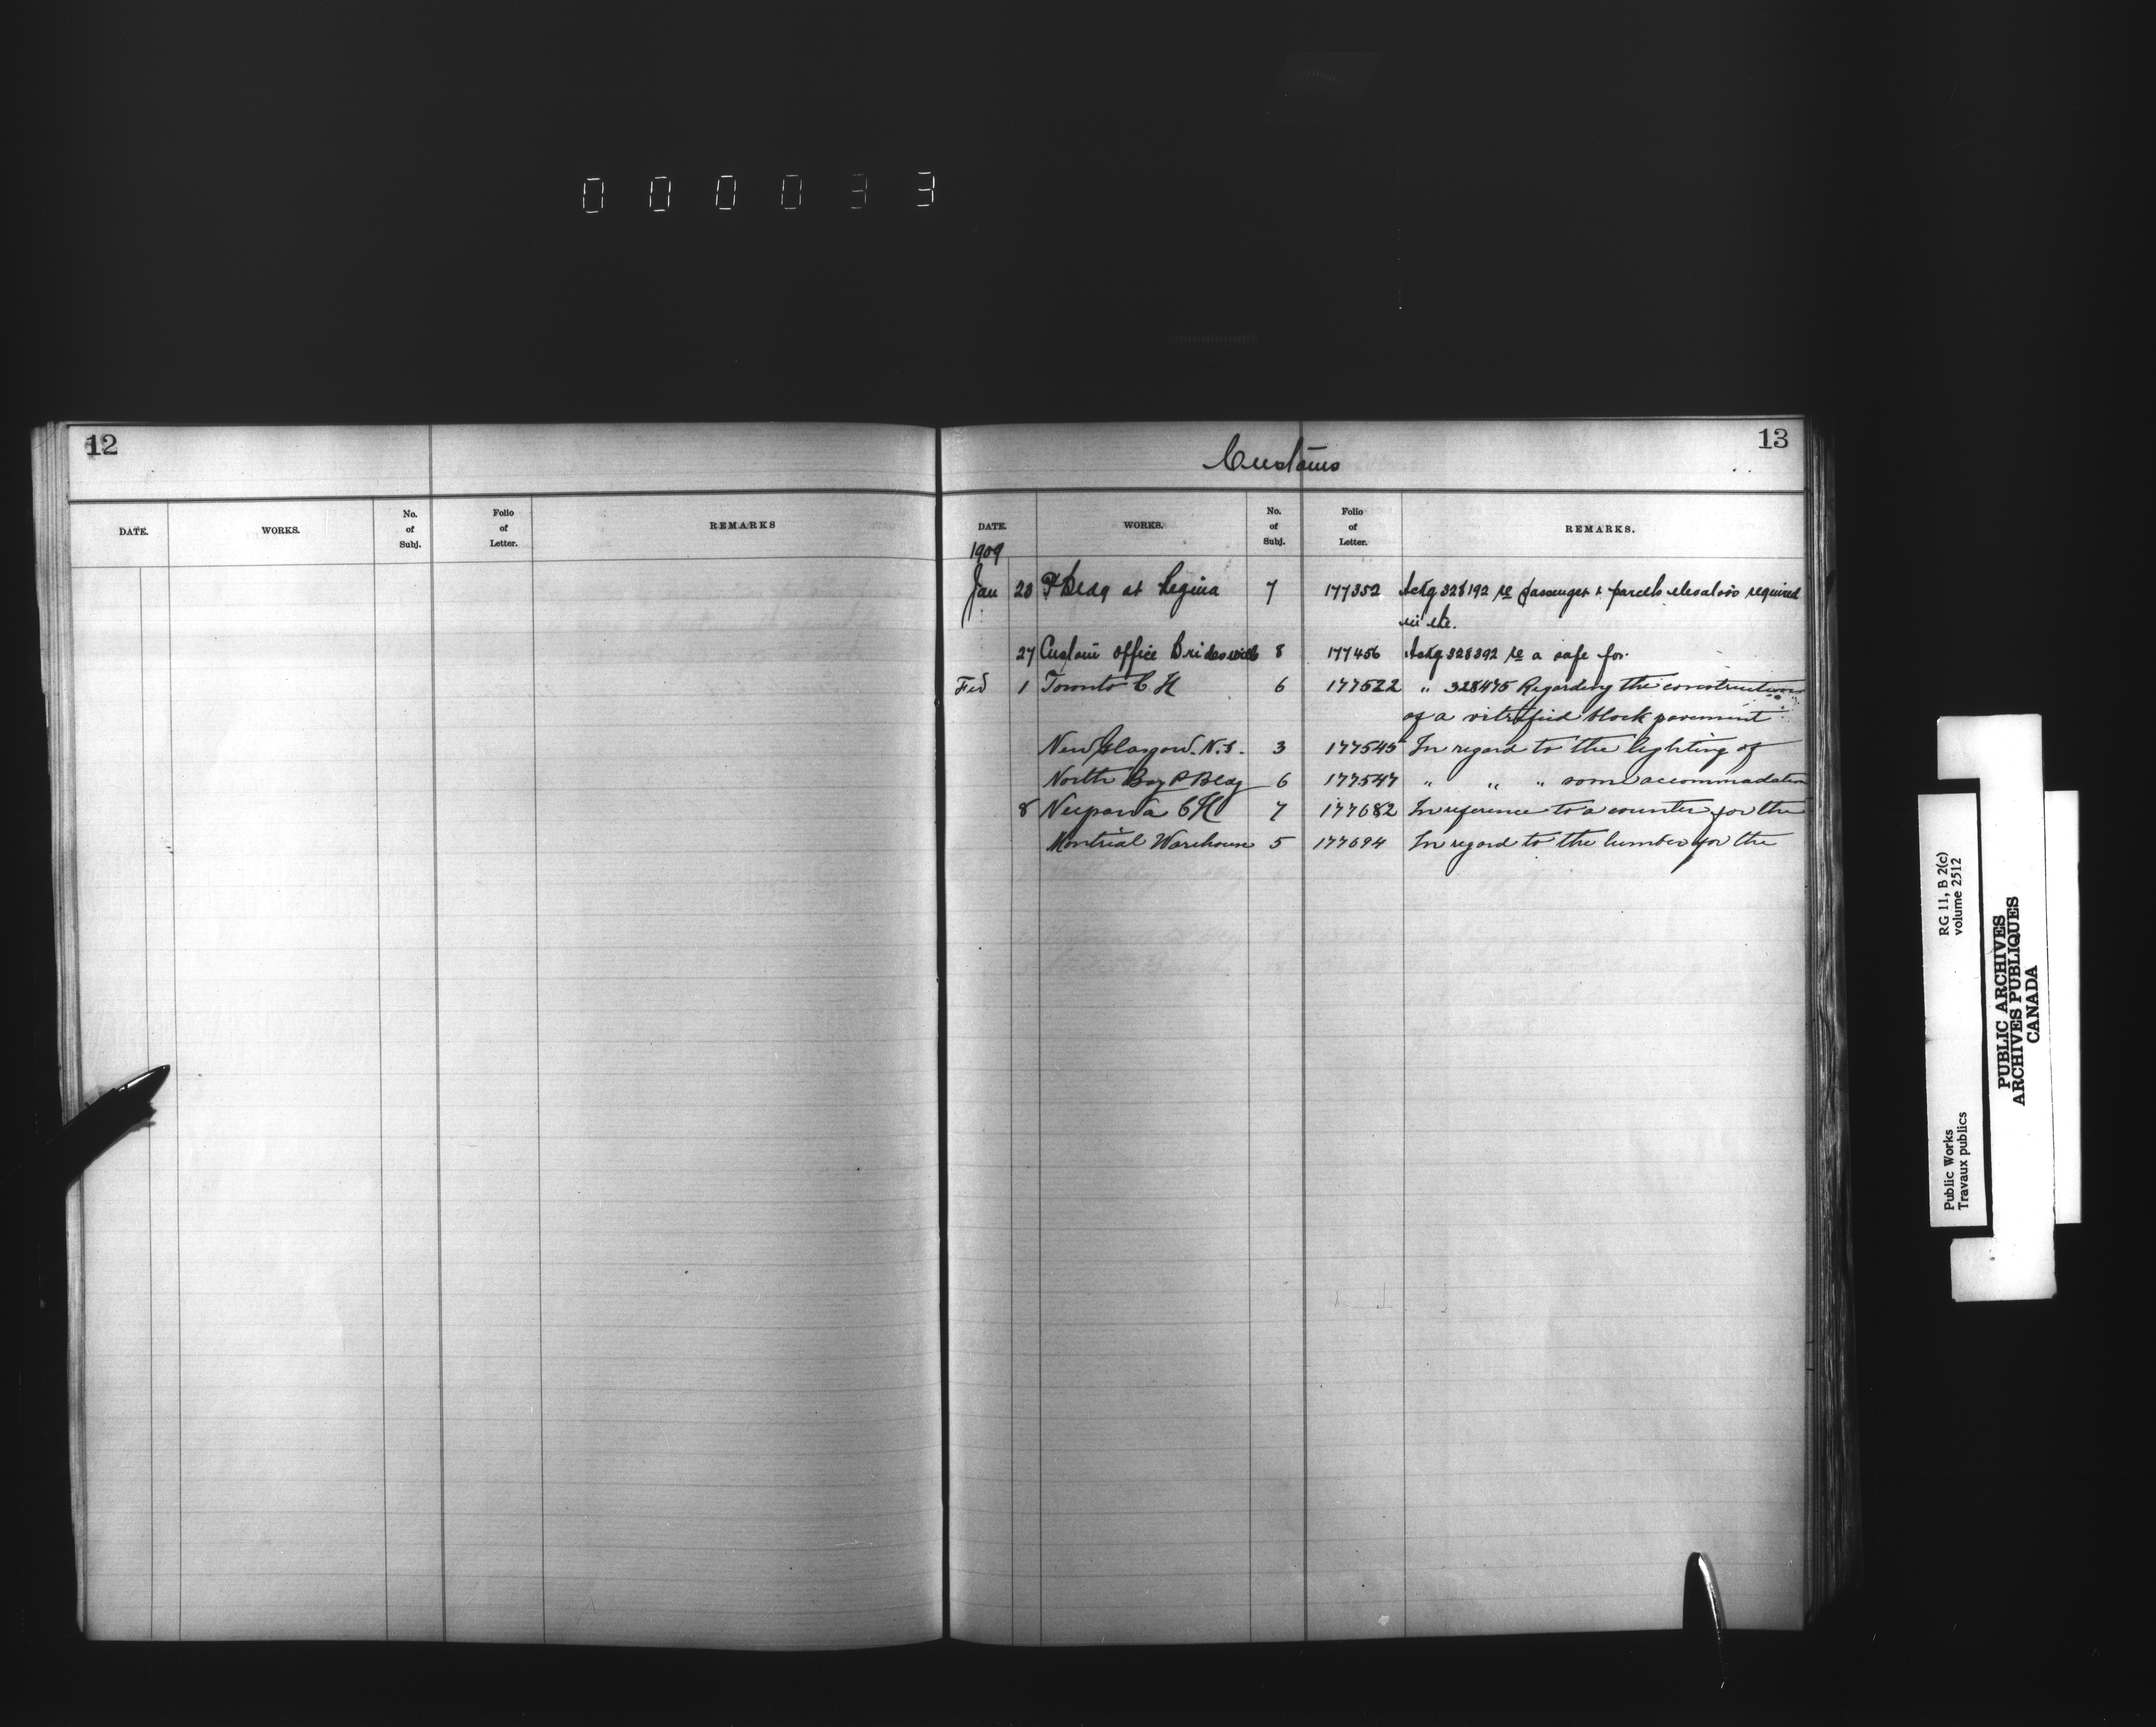 000033
12
DATE. WORKS. No. of Subj. Folio of Letter. REMARKS
13
Customs
DATE. WORKS. No. of Subj. Folio of Letter. REMARKS.
1909
Jan 20 P Bldg at Regina 7 177352 Ackg 328192 re passenger & parcels elevators required
in the.
27 Custom office 8 177456 Ackg 328392 re a safe for
Feb 1 Toronto C H 6 177522 " 328475 Regarding the construction
of a vitrified block pavement
New Glasgow. N.S. 3 177545 In regard to the lighting of
North Bay P Bldg 6 177547 " " " some accommodation
8 Neepawa C H 7 177682 In reference to a counter for the
Montreal Warehouse 5 177694 In regard to the lumber for the
Public Works
Travaux publics
RG 11, B 2(c)
volume 2512
PUBLIC ARCHIVES
ARCHIVES PUBLIQUES
CANADA